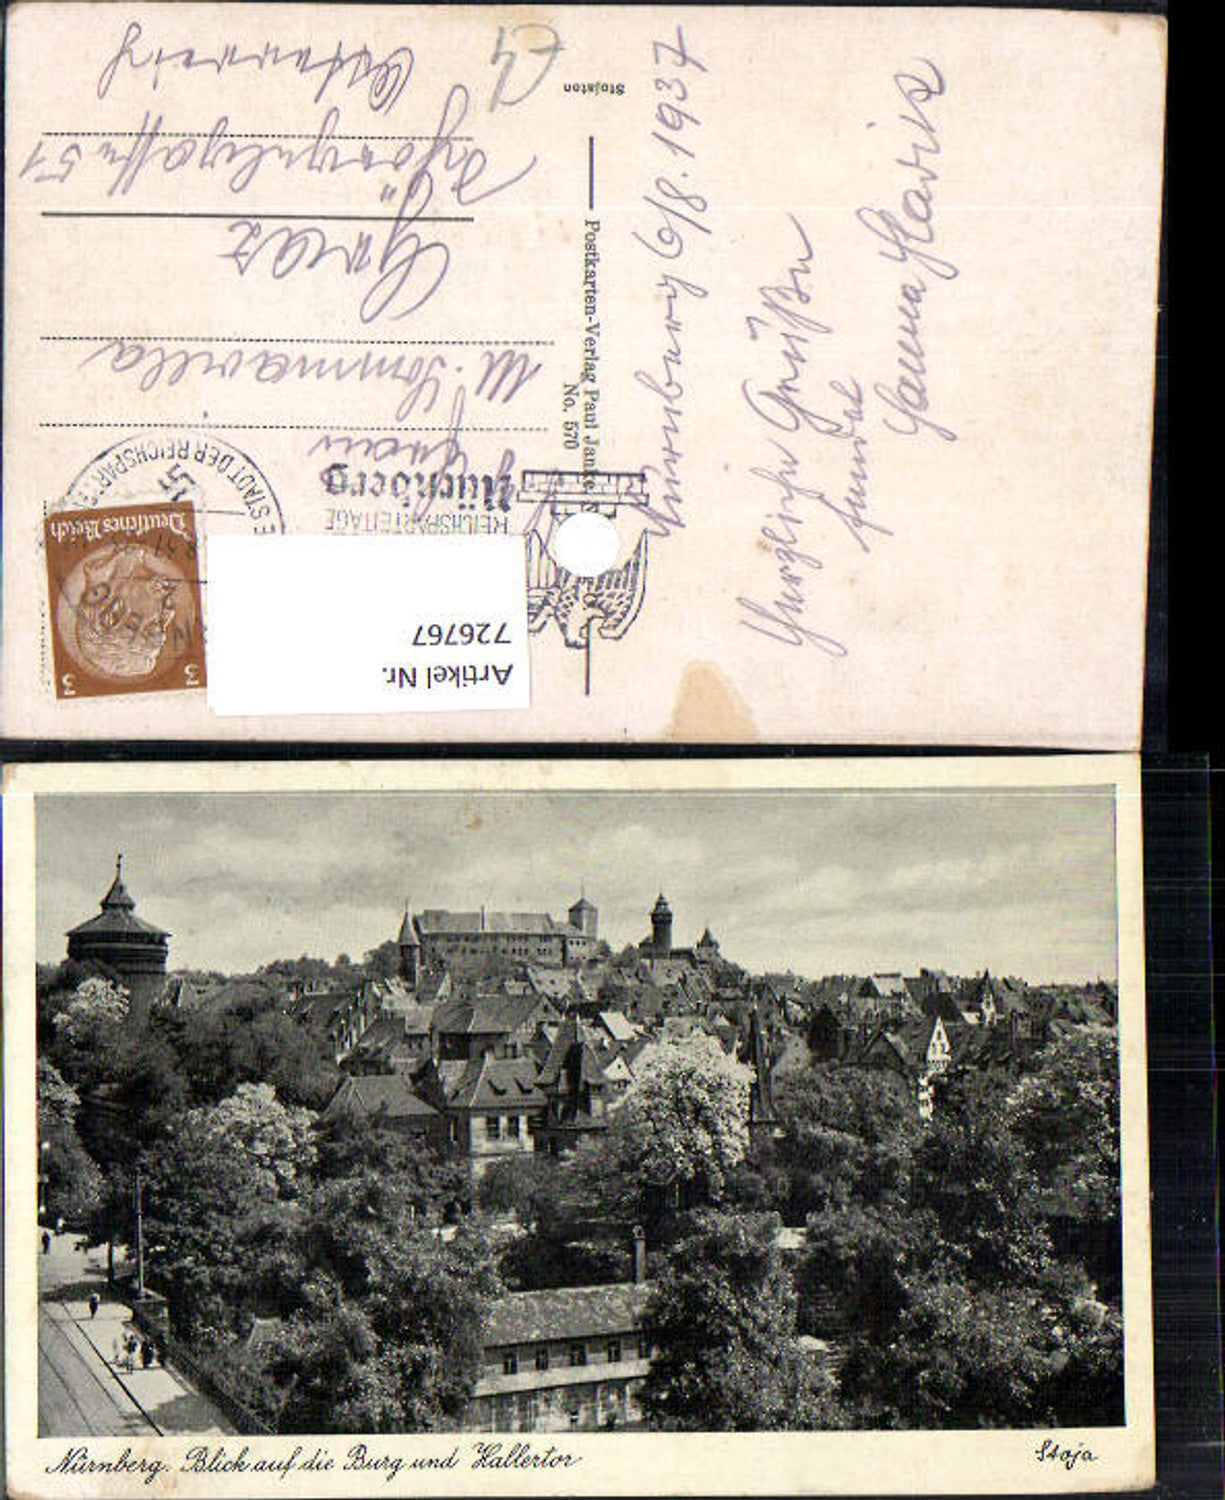 Nürnberg 6/8. 1937
Herzliche Grüße
sendet
Stojaton
Postkarten-Verlag Paul Janke
No. 570
Österreich
51
Graz
M. Sommavilla
STADT DER REICHSPAR
Nürnberg
REICHSPARTEITAGE
Deutsches Reich
3 3
Artikel Nr.
726767
Nürnberg. Blick auf die Burg und Hallertor
Stoja